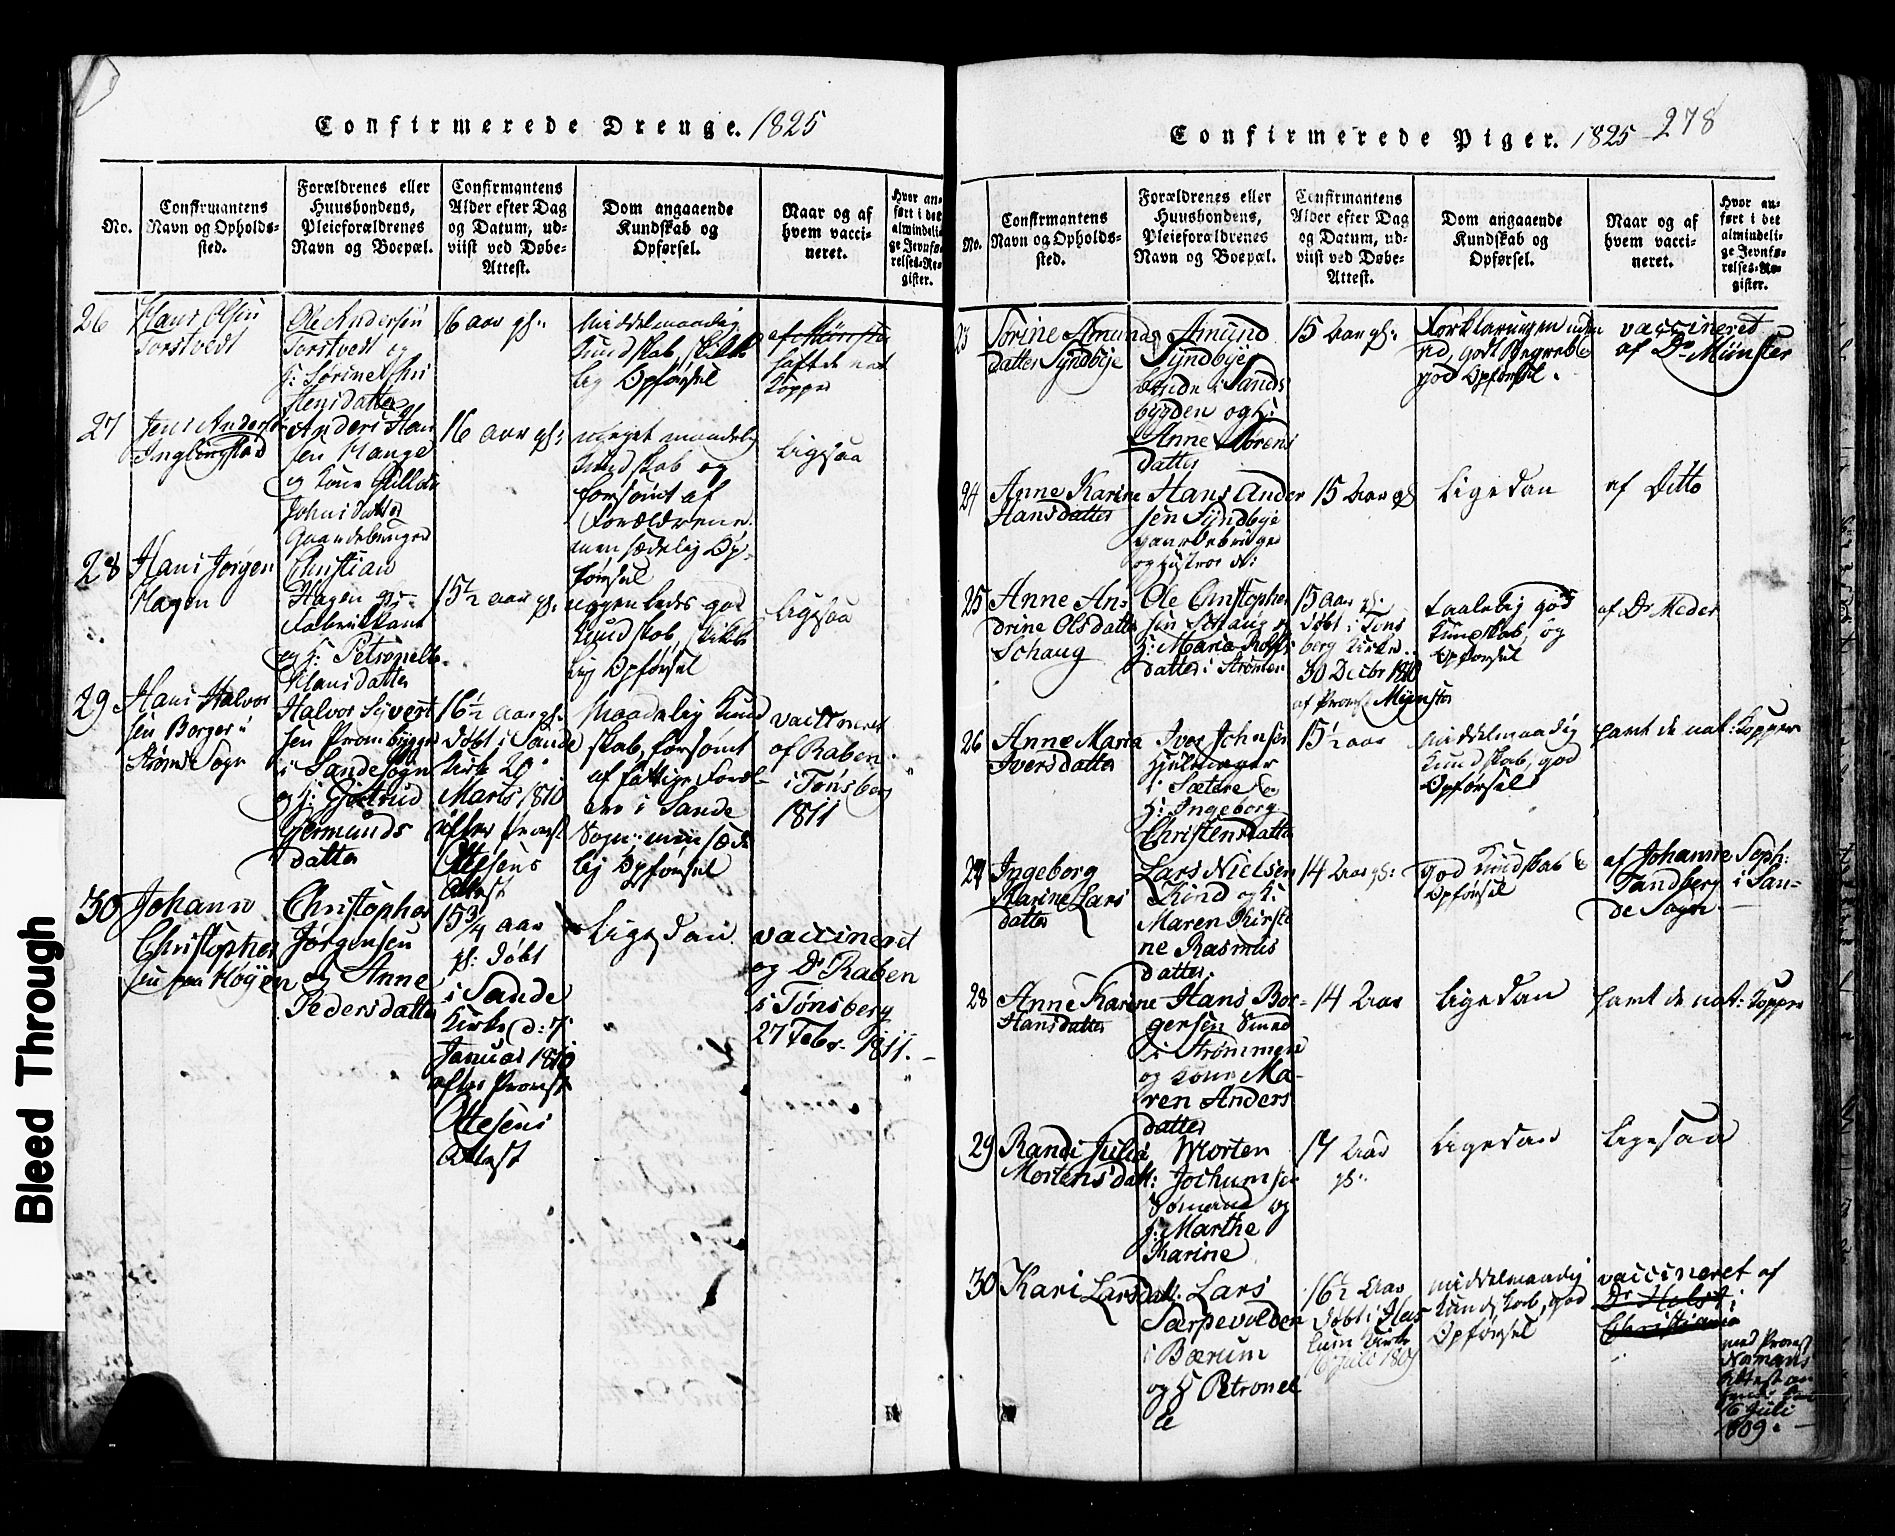 Bleed Through
Confirmerede Drenge. 1825
No.
Confirmantens
Navn og Opholds-
sted.
Forældrenes eller
Huusbondens,
Pleieforældrenes
Navn og Boepæl.
Confirmantens
Alder efter Dag
og Datum, ud-
viist ved Døbe-
Attest.
Dom angaaende
Kundskab og
Opførsel.
Naar og af
hvem vacci-
neret.
Hvor an-
ført i det
almindeli-
ge Jevnfø-
relses-Re-
gister.
26
Hans Olsen
Torstvedt
Ole Andersen
Torstvedt og
Stensdatter
16 aar gl:
Middelmaadig
Kundskab, skikke
lig Opførsel
af Münster
haft de nat
Kopper
27
Jens Anders
Inglingstad
Anders Han
sen Hauge
og Kone
Johnsdatter
16 aar gl:
meget maadelig
Kundskab og
forsømt af
Forældrene
men sædelig Op-
førsel
Ligesaa
28
Hans Jørgen
Hagen
Christian
Hagen
Fabrikant
og h: Petronelle
Klausdatter
15½ aar gl:
nogenledes god
Kundskab, skikke
lig Opførsel
Ligesaa
29
Hans Halvor
sen Borger i
Strøms Sogn
Halvor Syvert
sen Prombygger
i Sande Sogn
og h: Gjertrud
Germunds
datter
16½ aar gl:
døbt i Sande
Kirke 20
Marts 1810
efter Provst
Ottesens
Attest
Maadelig Kund
skab, forsømt
af fattige Foræl
dre i Sande
Sogn; men sæde
lig Opførsel
vaccineret
af Raben
i Tønsberg
1811
30
Johann
Christopher
sen paa Høyen
Christopher
Jørgensen
og Anne
Pedersdatter
15¾ aar
gl: døbt
i Sande
Kirke d: 7
Januar 1810
efter Provst
Ottesens
Attest
Ligedan
vaccineret
og Dr Raben
i Tønsberg
27 Febr. 1811.
Confirmerede Piger. 1825 278
No.
Confirmantens
Navn og Opholds-
sted.
Forældrenes eller
Huusbondens,
Pleieforældrenes
Navn og Boepæl.
Confirmantens
Alder efter Dag
og Datum, ud-
viist ved Døbe-
Attest.
Dom angaaende
Kundskab og
Opførsel.
Naar og af
hvem vacci-
neret.
Hvor an-
ført i det
almindeli-
ge Jevnfø-
relses-Re-
gister.
23
Sørine Amunds
datter Syndbye
Amund
Syndbye
i Sands
bygden og h:
Anne Sørens
datter
15 Aar gl:
god Opførsel.
vaccineret
af Dr Münster
24
Anne Karine
Hansdatter
Hans Ander
sen Syndbye
gaardebruger
og hustroe
15 Aar gl
Ligedan
af Ditto
25
Anne An
drine Olsdatter
Schaug
Ole Christopher
sen Schaug og
h: Maria Rolfs
datter i Strømm
15 aar gl:
døbt i Tøns
berg Kirke
30 Decbr 1810
af Provst Münster
taalelig god
Kundskab, og
Opførsel
af Dr Meder
26
Anne Maria
Iversdatter
Iver Johnsen
Hjelmager
i Sætere og
h: Ingeborg
Christensdatter
15½ aar
middelmaadig
Kundskab, god
Opførsel
havt de nat: Kopper
27
Ingeborg
Karine Lars
datter
Lars Nielsen
Kind og h:
Maren Kirsti
ne Rasmus
datter.
14 Aar gl:
god Kundskab &
Opførsel
af Johanne Soph:
Sandberg i San-
de Sogn
28
Anne Karine
Hansdatter
Hans Bor-
gersen Smed
i Strømmen
og Kone Ma-
ren Anders
datter
14 Aar
Ligedan
havt de nat: Kopper
29
Randi Julia
Mortensdatt:
Morten
Jochumsen
Sømand og
h: Marthe
Karine
17 Aar
gl:
Ligedan
Ligesaa
30
Kari Larsdatt:
Lars
Særpevolden
i Bærum
og h Petronel
le
16½ Aar
døbt i Has
lum Kirke
16 Juli 1809
middelmaadig
Kundskab, god
Opførsel
vaccineret af
Dr Holst i
Christiania
med Provst
Attest
16 Juli
1809.